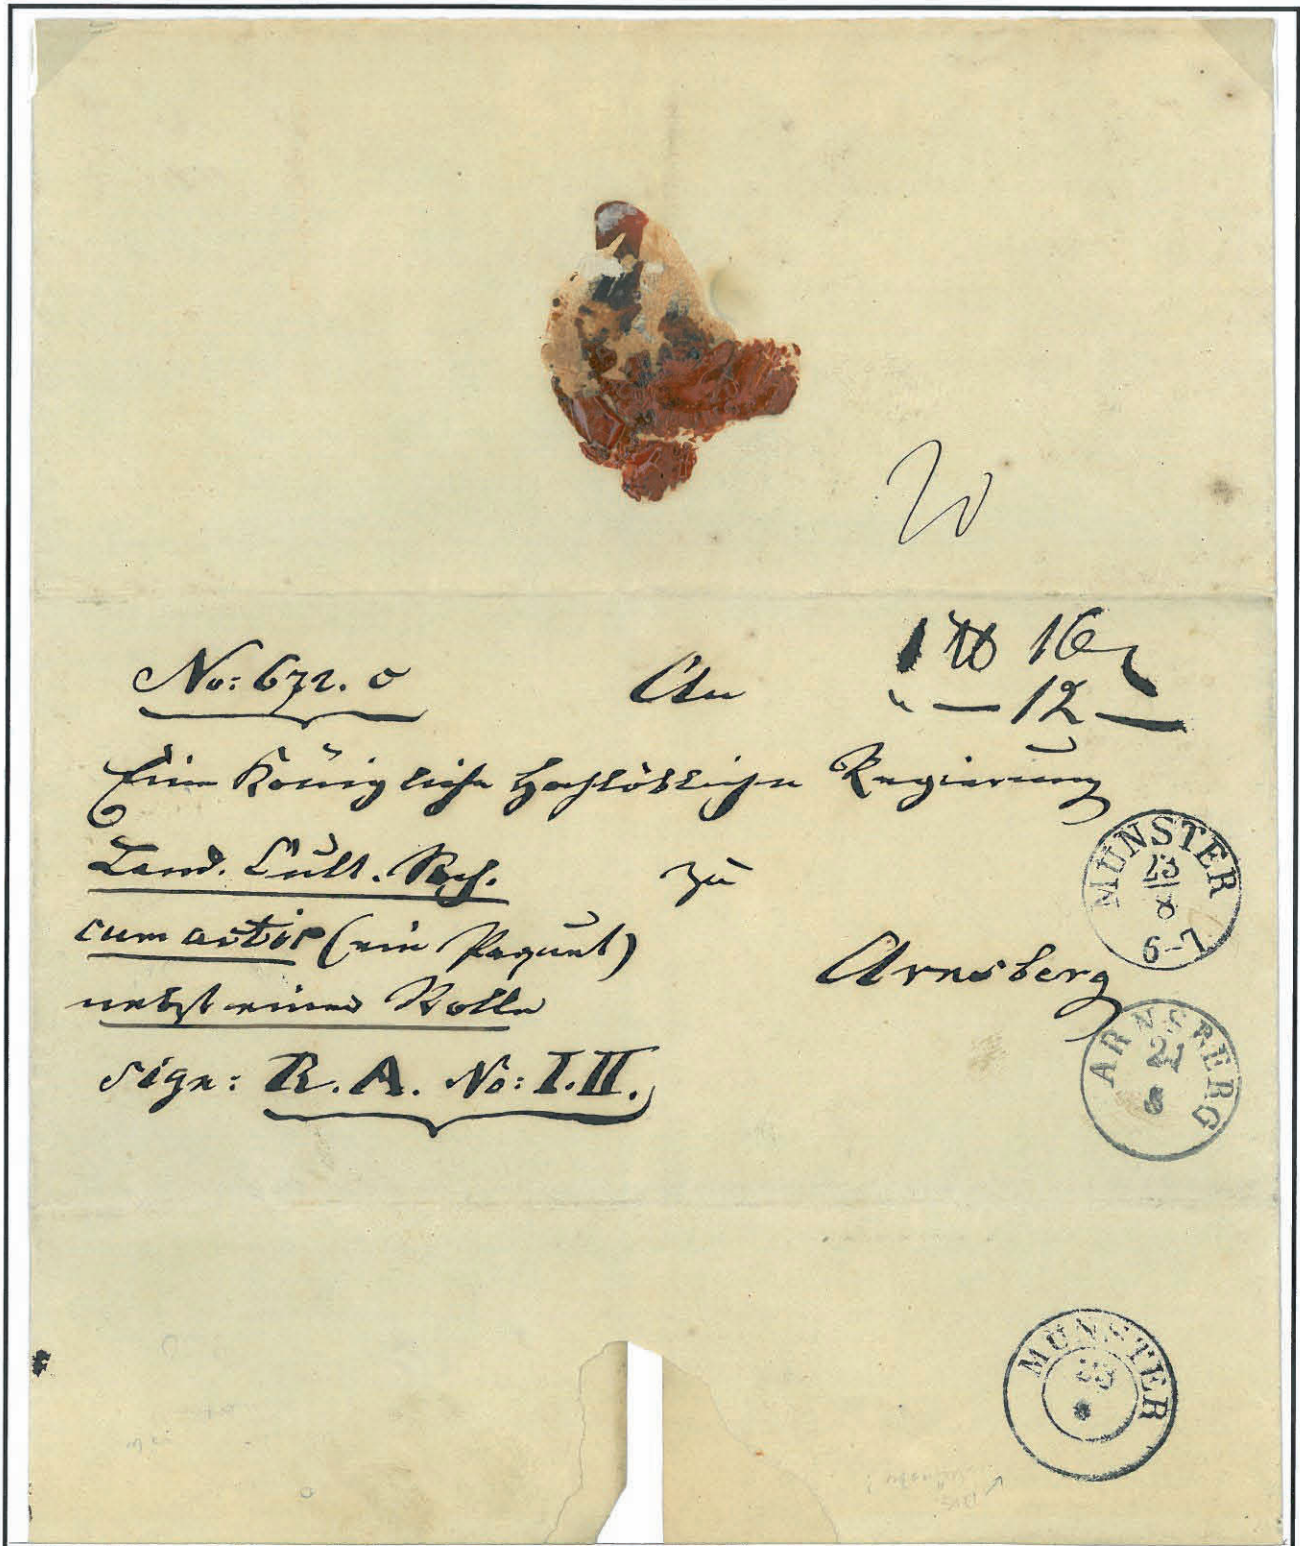 20
No: 672. O
An
1 ℔ 16
" — 12 —
Eine Königliche Hochlöbliche Regierung
Land. Cult. Sach.
zu
cum actis (ein Paquet)
nebst einer Rolle
Arnsberg
sign: R. A. No: I. II.
MÜNSTER
23
8
6-7
ARNSBERG
24
8
MÜNSTER